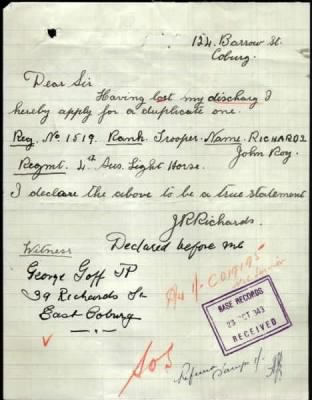 124. Barrow St.
Coburg.
Dear Sir
Having lost my discharg I
hereby apply for a duplicate one.
Reg. No 1519. Rank. Trooper. Name. RICHARDS
John Roy.
Regmt. 4th Aus. Light Horse.
I declare the above to be a true statement
J R Richards.
Witness Declared before me
George Goff JP
39 Richards St
East Coburg
BASE RECORDS
23 OCT 1943
RECEIVED
SOS